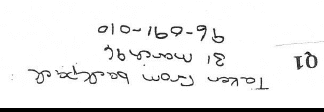 Q1
Taken from backpack :
31 march 96
96-091-010